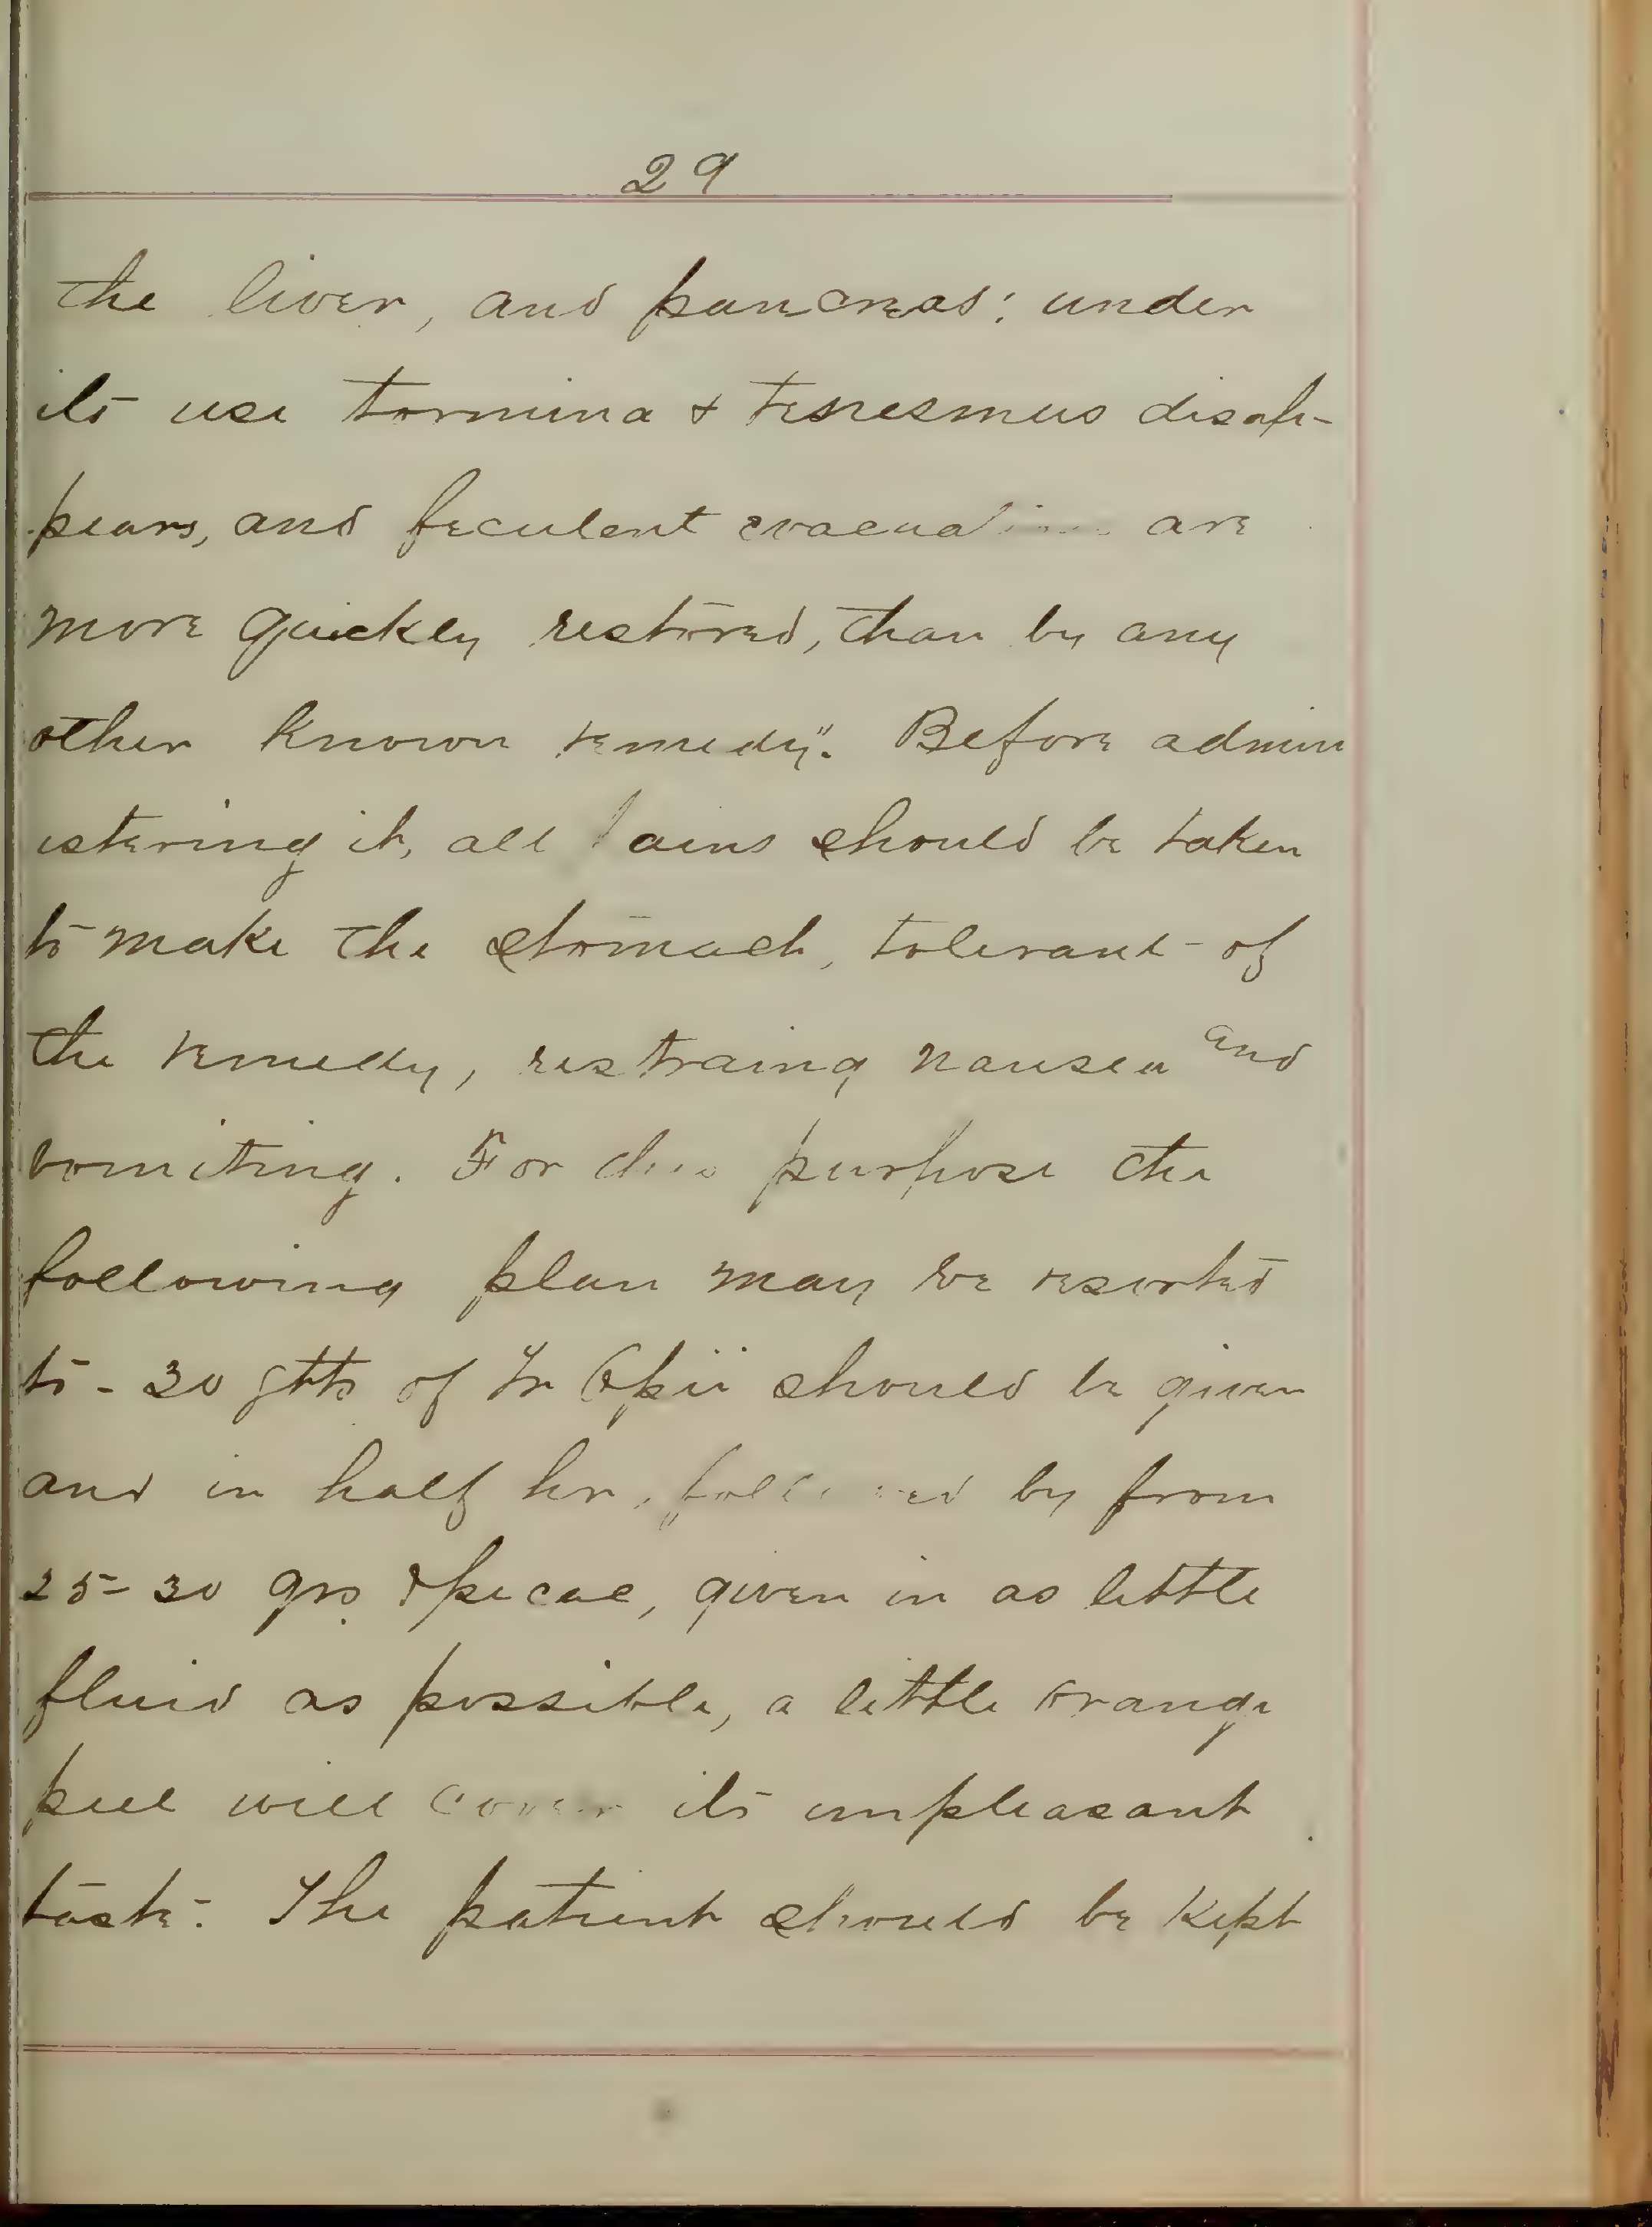 29
the liver, and pancreas: under
its use tormina & tenesmus disap-
pears, and feculent evacuations are
more quickly restored, than by any
other known remedy". Before admin
istering it, all pains should be taken
to make the stomach, tolerant of
the remedy, restraing nausea and
vomiting. For this purpose the
following plan may be resorted
to - 30 gtts of Tr Opii should be given
and in half hr, followed by from
25-30 grs Ipecac, given in as little
fluid as possible, a little orange
peel will cover its unpleasant
taste. The patient should be kept